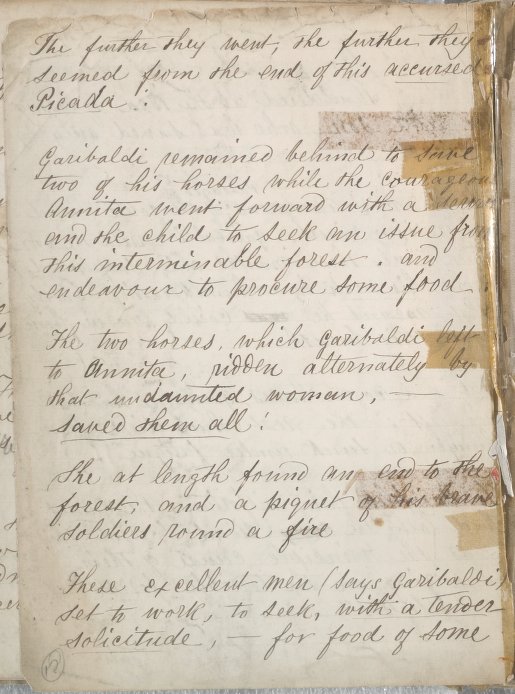 The further they went, the further they
seemed from the end of this accursed
Picada!
Garibaldi remained behind to save
two of his horses while the courageous
Annita went forward with a
and the child to seek an issue from
this interminable forest. and
endeavour to procure some food.
The two horses, which Garibaldi left
to Annita, ridden alternately by
that undaunted woman, —
saved them all!
She at length found an end to the
forest, and a piquet of his brave
soldiers round a fire
These excellent men (says Garibaldi)
set to work, to seek, with a tender
solicitude, — for food of some
12